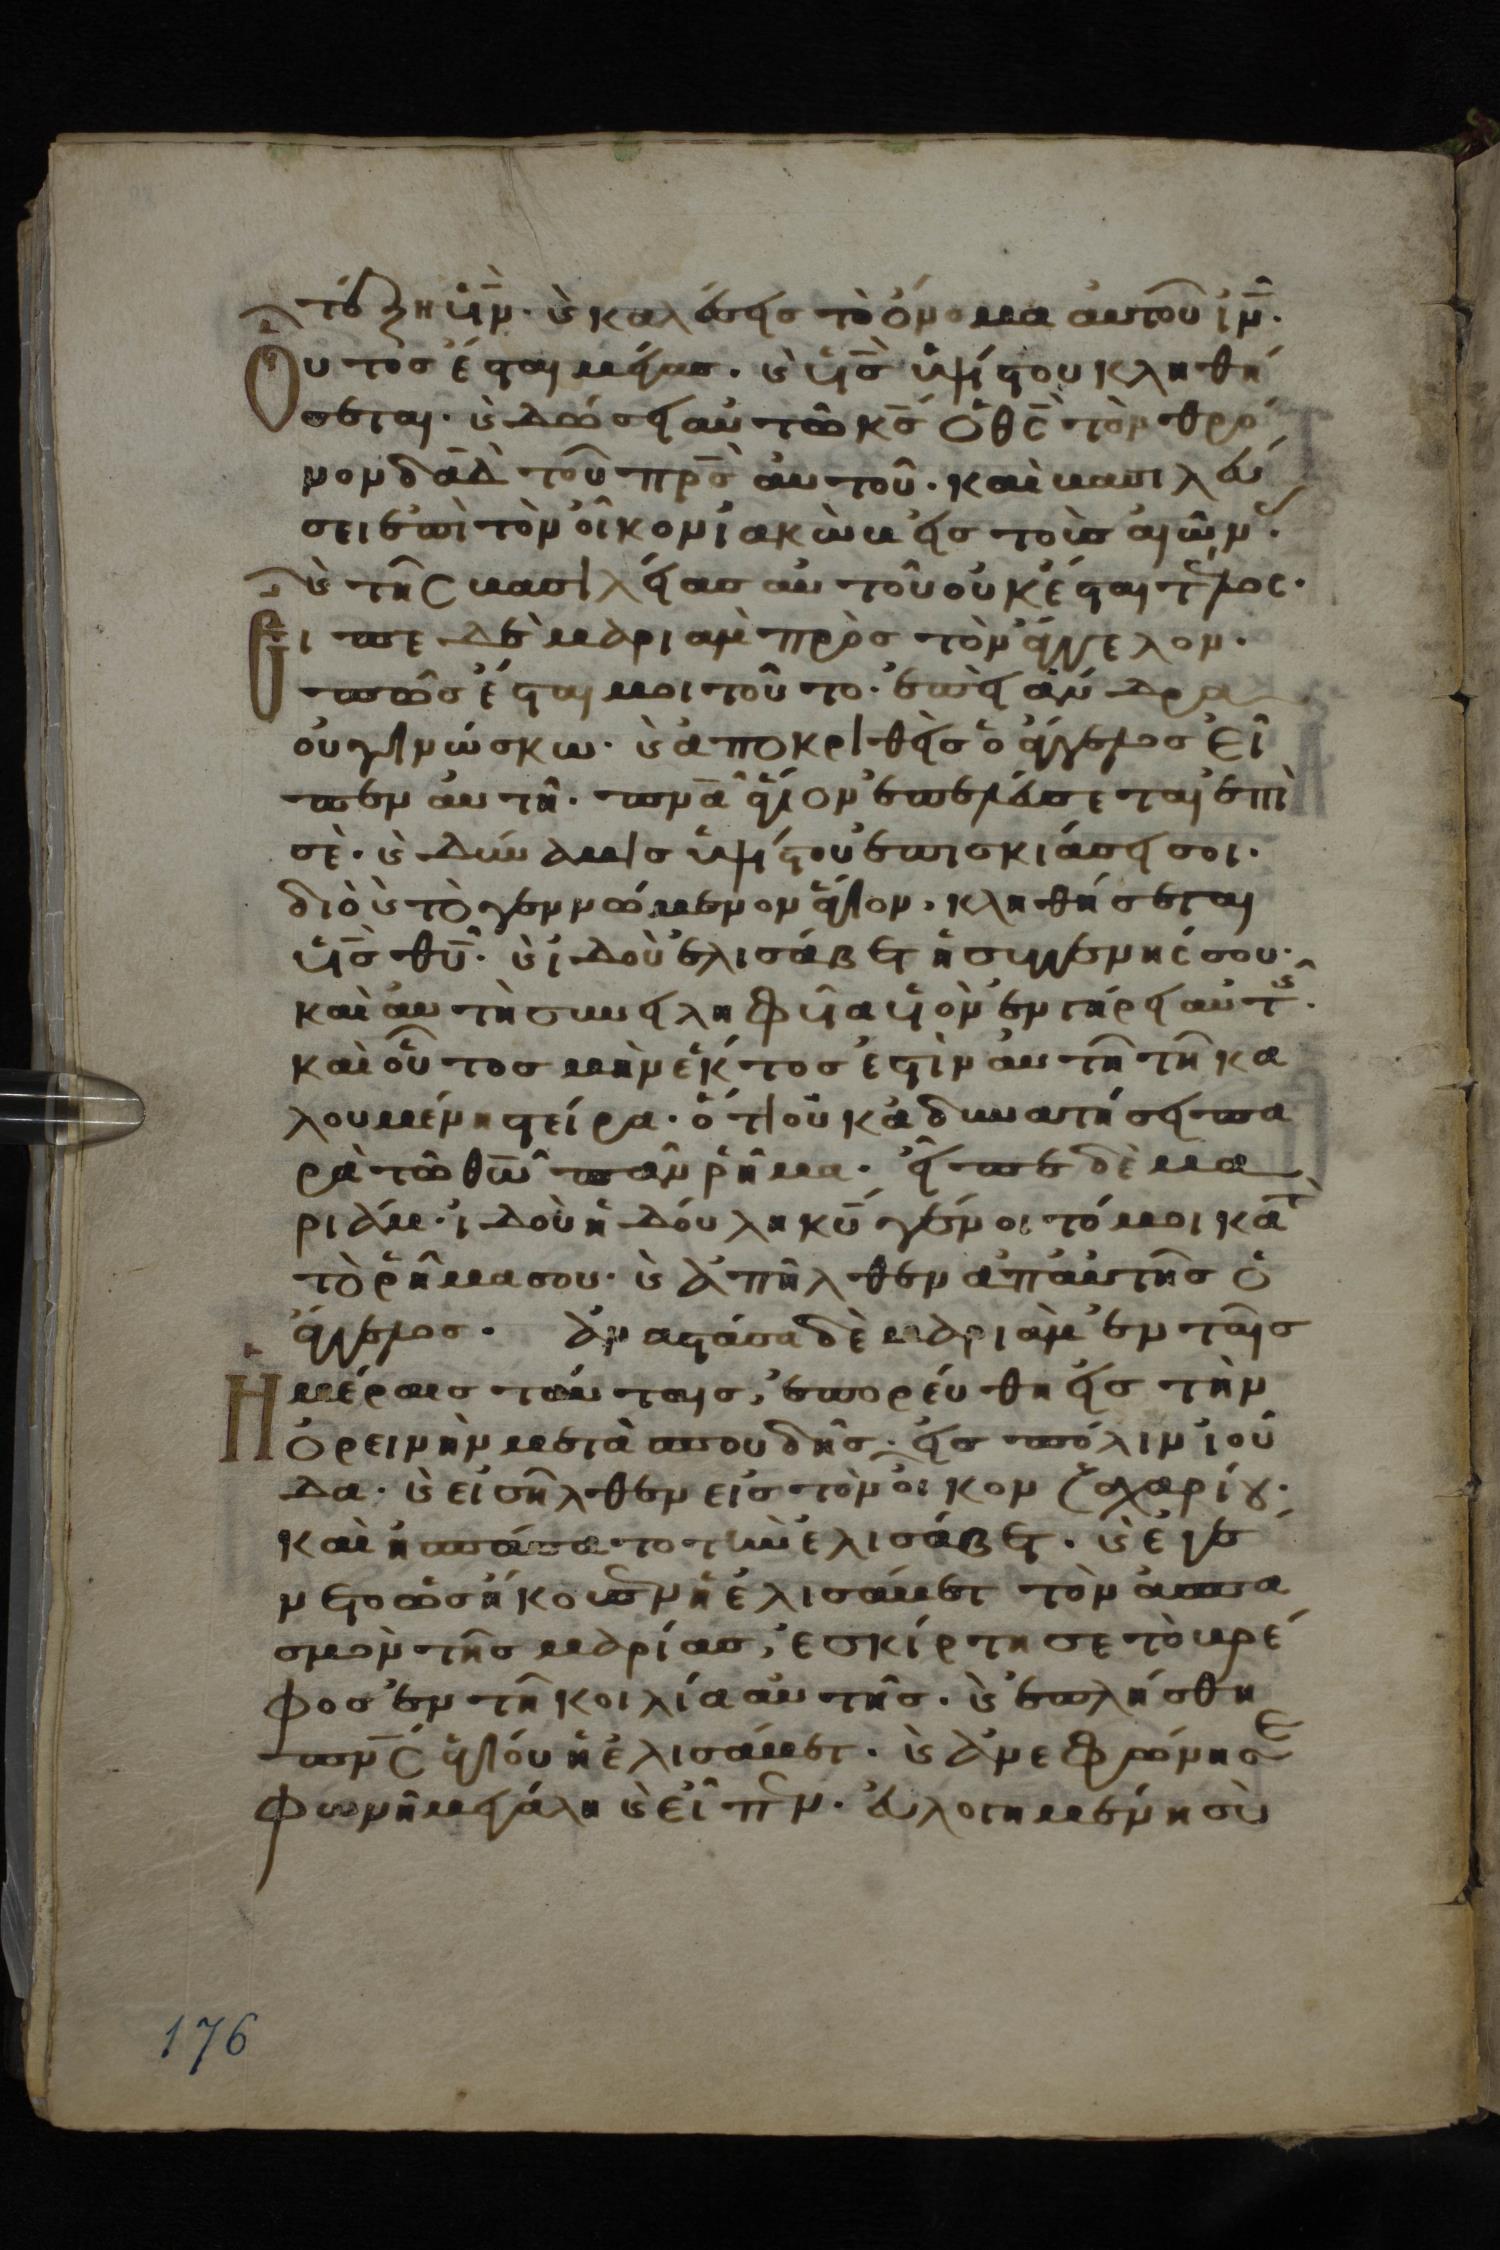 τέξη υἱν̅· κ(αὶ) καλέσεις τὸ ὄνομα αὐτοῦ ιν̅·
Οὗτος ἔσται μέγας· κ(αὶ) υἱς̅ ὑψίστου κληθή
σεται· κ(αὶ) δώσει αὐτῶ κς̅ ὁ θς̅ τὸν θρό
νον δαδ̅ τοῦ πρς̅ αὐτοῦ· καὶ βασιλεύ
σει ἐπὶ τὸν οἶκον ἰακὼβ εἰς τοὺς αἰῶν·
κ(αὶ) τῆς βασιλείας αὐτοῦ οὐκ ἔσται τέλος·
Εἶπε δὲ μαριὰμ πρὸς τὸν ἄγγελον·
πῶς ἔσται μοι τοῦτο· ἐπεὶ ἄνδρα
οὐ γινώσκω· κ(αὶ) ἀποκριθεὶς ὁ ἄγγελος εἶ
πεν αὐτῆ· πνα̅ ἅγιον ἐπελεύσεται ἐπὶ
σὲ· κ(αὶ) δύναμις ὑψίστου ἐπισκιάσει σοι·
διὸ κ(αὶ) τὸ γεννώμενον ἅγιον, κληθήσεται
υἱς̅ θυ̅· κ(αὶ) ἰδοὺ ἐλισάβετ ἡ συγγενής σου·
καὶ αὐτὴ συνειληφυῖα υἱὸν ἐν γήρει αὐτῆς·
καὶ οὗτος μὴν ἕκτος ἐστὶν αὐτῆ τῆ κα
λουμένη στείρα· ὅτι οὐκ ἀδυνατήσει πα
ρὰ τῶ θω̅ πᾶν ῥῆμα· εἶπε δὲ μα
ριάμ· ἰδοὺ ἡ δούλη κυ̅ γένοιτό μοι κατ
τὸ ῥῆμα σου· κ(αὶ) ἀπῆλθεν ἀπ αὐτῆς ὁ
ἄγγελος· ἀναστάσα δὲ μαριὰμ ἐν ταῖς
Ημέραις ταύταις, ἐπορεύθη εἰς τὴν
ὀρεινὴν μετὰ σπουδῆς· εἰς πόλιν ἰού
δα· κ(αὶ) εἰσῆλθεν εἰς τὸν οἶκον ζαχαρίου·
καὶ ἠσπάσατο τὴν ἐλισάβετ· κ(αὶ) ἐγέ
νετο ὡς ἤκουσεν ἡ ἐλισάβετ τὸν ἀσπα
σμὸν τῆς μαρίας, ἐσκίρτησε τὸ βρέ
φος ἐν τῆ κοιλία αὐτῆς· κ(αὶ) ἐπλήσθη
πνς̅ ἁγίου ἡ ἐλισάβετ· κ(αὶ) ἀνεφώνησε
φωνῆ μεγάλη κ(αὶ) εἶπεν· εὐλογημένη σὺ
176